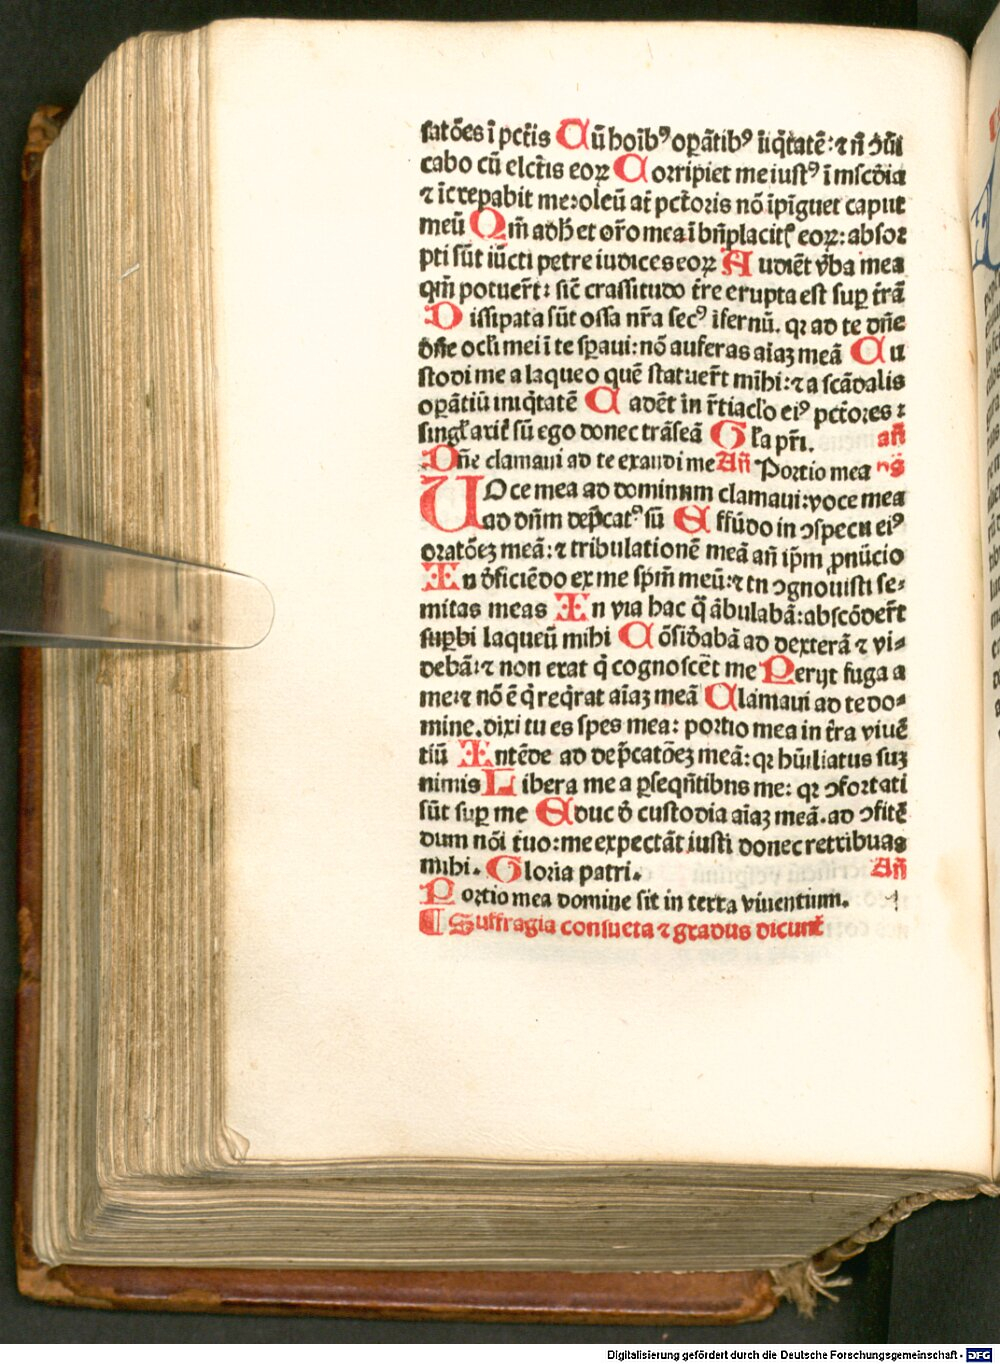 satões ī pctīs Cū hoīb⁹ oꝑātib⁹ īiq̄tatē: ⁊ nō ↄ̄mūi
cabo cū elctīs eoꝝ Corripiet me iust⁹ ī mīscðia
⁊ īcrepabit me: oleū aūt pctoris nō īpīguet caput
meū Qm̄ adhꝰ et or̄o mea ī bn̄placitꝭ eoꝝ: absor
pti sūt iūcti petre iudices eoꝝ Audiēt v̄ba mea
qm̄ potuer̄t: sic̄ crassitudo tr̄e erupta est suꝑ tr̄ā
Dissipata sūt ossa nr̄a sec⁹ īfernū. qꝛ ad te dn̄e
dn̄e ocl̄i mei ī te sꝑaui: nō auferas aīaꝫ meā Cu
stodi me a laqueo quē statuer̄t mihi: ⁊ a scādalis
oꝑātiū iniq̄tatē Cadēt in r̄tiacl̓o ei⁹ pctores:
singl̓arit̄ sū ego donec trāseā Gl̓a pr̄i. añ
Dn̄e clamaui ad te exaudi me Añ Portio mea ꝓs̄
Uoce mea ad dominum clamaui: voce mea
ad dn̄m dep̄cat⁹ sū Effūdo in ↄspectu ei⁹
oratōeꝫ meā: ⁊ tribulationē meā añ ip̄m ꝓnūcio
In ðficiēdo ex me sp̄m meū: ⁊ tu ↄgnouisti se-
mitas meas In via hac q̄ ābulabā: abscōder̄t
suꝑbi laqueū mihi Cōsiðabā ad dexterā ⁊ vi-
debā: ⁊ non erat q̄ cognoscēt me Perijt fuga a
me: ⁊ nō ē q̄ req̄rat aīaꝫ meā Clamaui ad te do-
mine. dixi tu es spes mea: portio mea in tr̄a viuē
tiū Intēde ad dep̄catōeꝫ meā: qꝛ hūiliatus suꝫ
nimis Libera me a ꝑseqn̄tibus me: qꝛ ↄfortati
sūt suꝑ me Educ ð custodia aīaꝫ meā. ad ↄfitē
dum nōi tuo: me expectāt iusti donec retribuas
mihi. Gloria patri. Añ
Portio mea domine sit in terra viuentium.
¶ Suffragia consueta ⁊ gradus dicunt̄
Digitalisierung gefördert durch die Deutsche Forschungsgemeinschaft - DFG